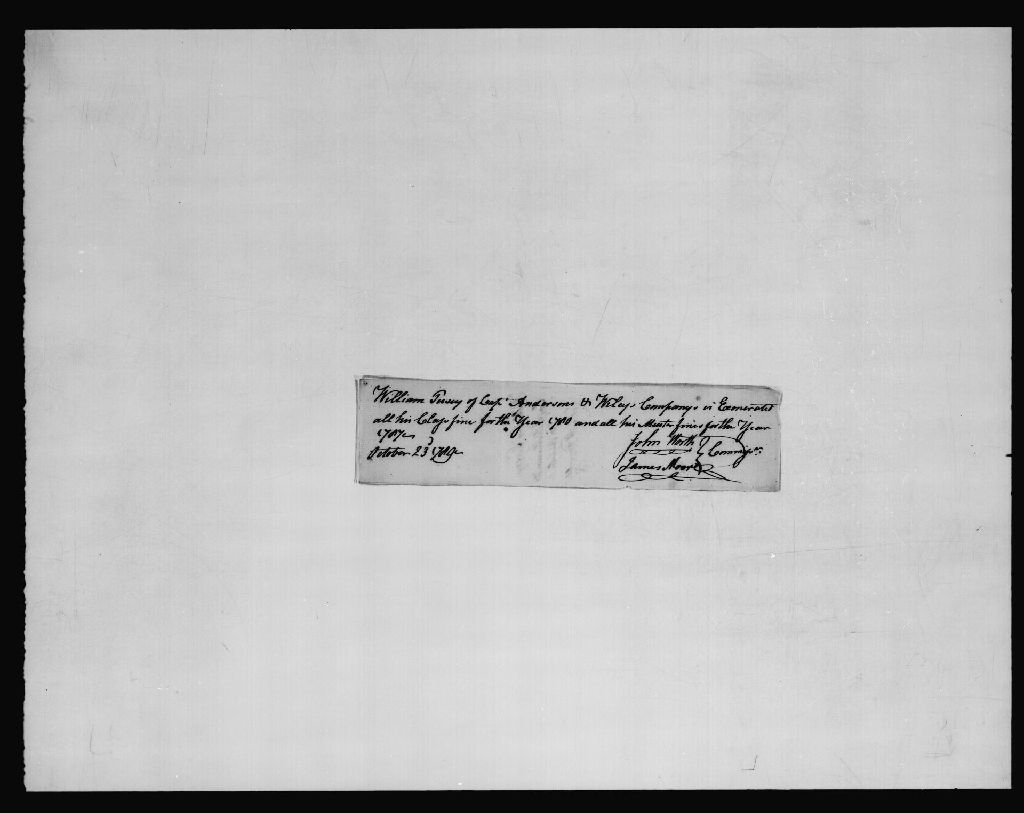 William Pusey of Capt Andersons & Wileys Companys is Exonerated
all his Class fine for the Year 1780 and all his Muster fines for the Year
1787
October 23d 1789 John Worth Commissrs
James Moore